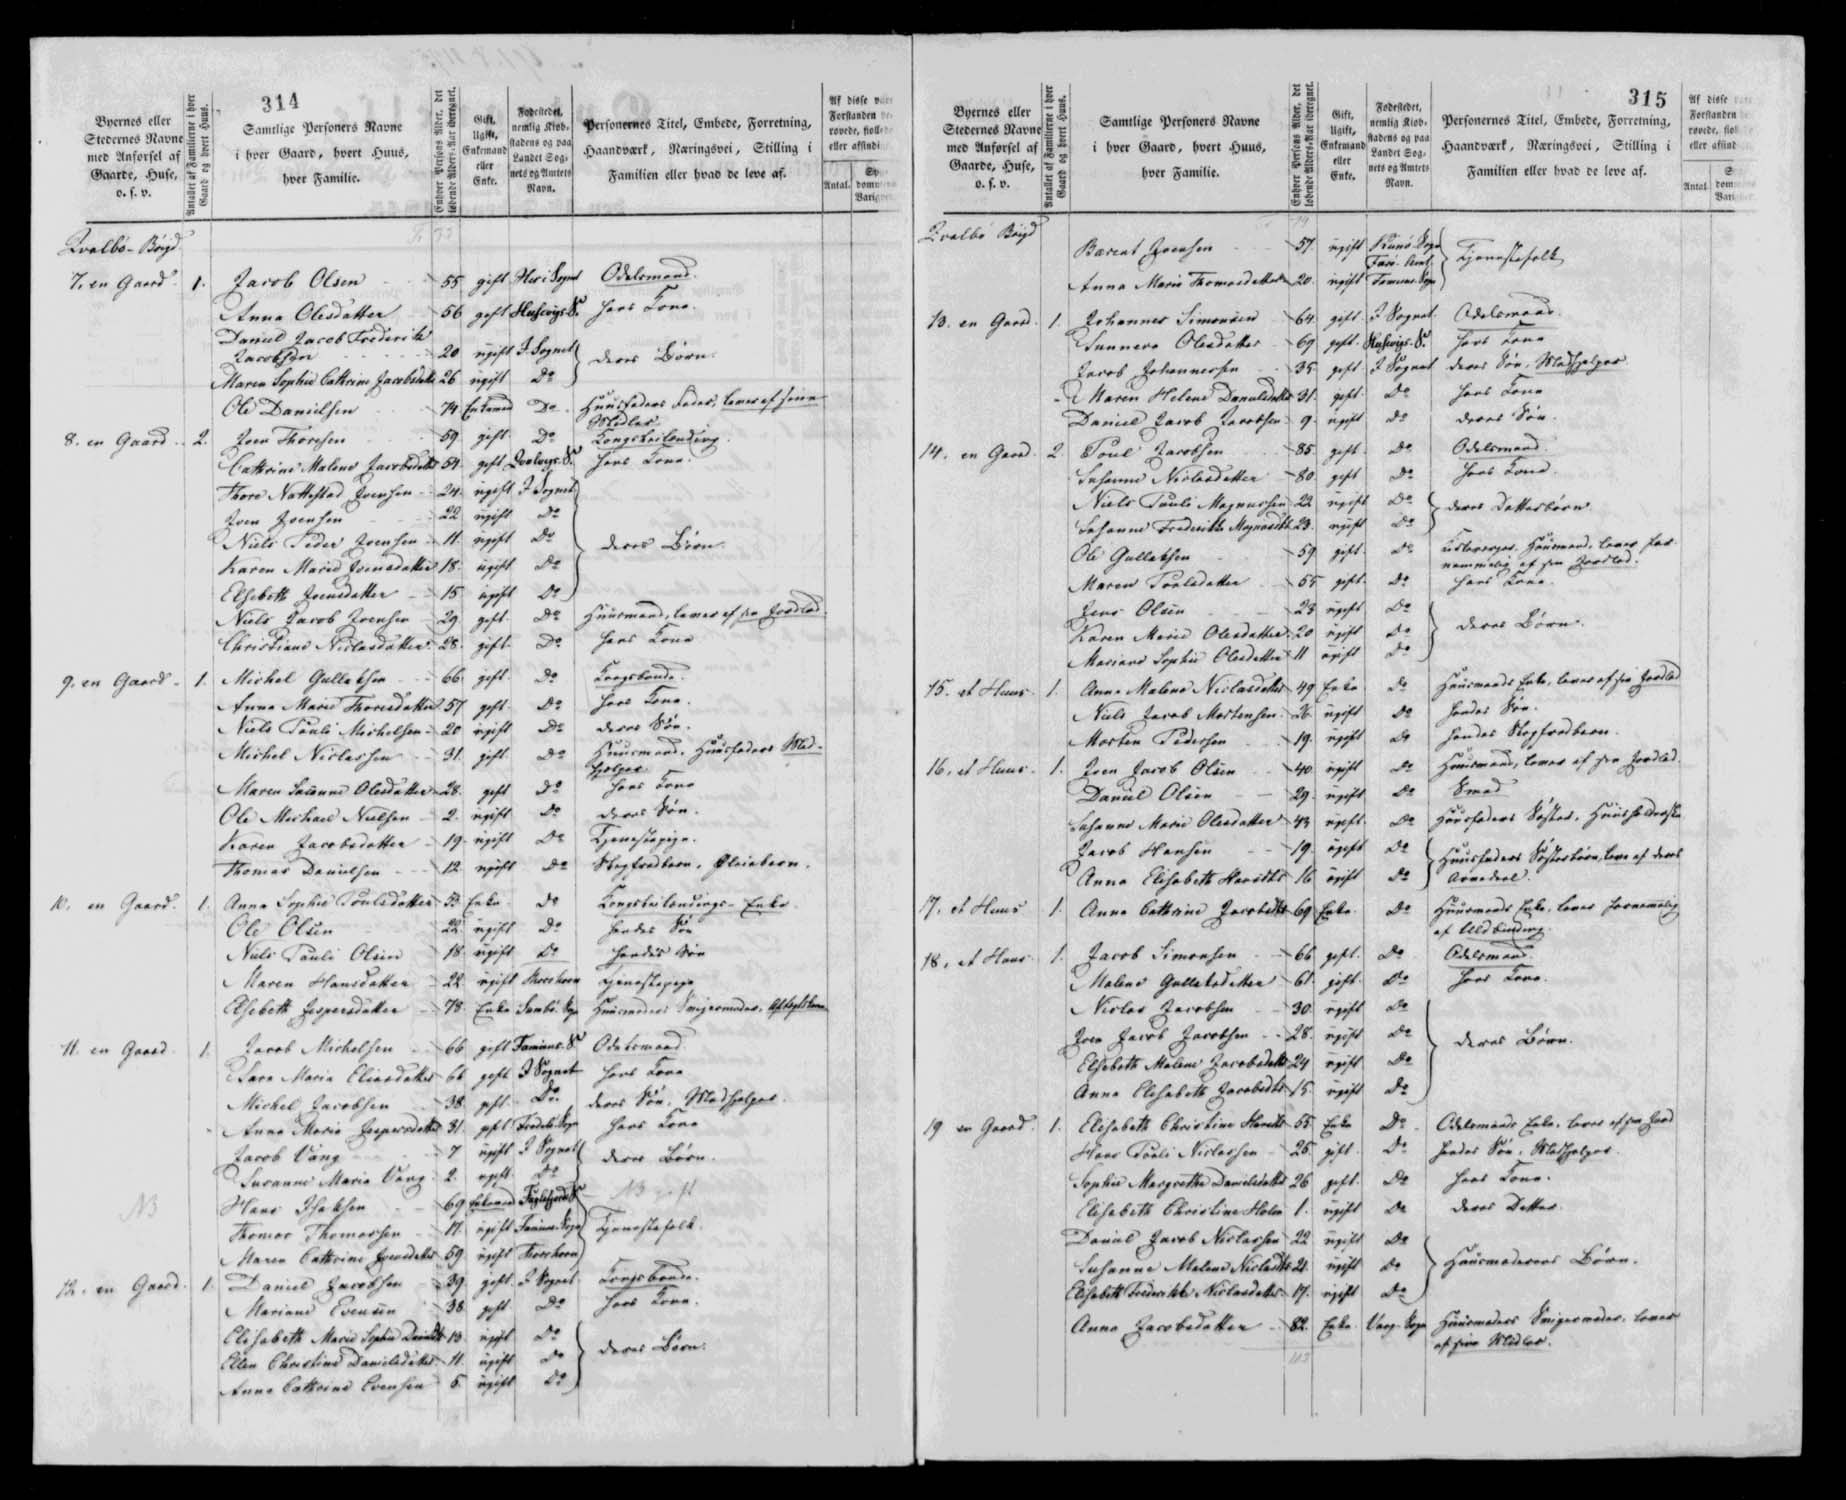 314
Byernes eller Stedernes Navne med Anførsel af Gaarde, Huse, o. s. v.
Antallet af Familierne i hver Gaard og hvert Huus.
Samtlige Personers Navne i hver Gaard, hvert Huus, hver Familie.
Enhver Persons Alder, det løbende Alders-Aar iberegnet.
Gift, Ugift, Enkemand eller Enke.
Fødestedet, nemlig Kjøbstadens og paa Landet Sognets og Amtets Navn.
Personernes Titel, Embede, Forretning, Haandværk, Næringsvei, Stilling i Familien eller hvad de leve af.
Antal.
Kvalbø-Bøigd
7, en Gaard 1. Jacob Olsen 55 gift Odelsmand.
Anna Olesdatter 56 gift Husevigs S. hans Kone.
Daniel Jacob Frederik
Jacobsen 20 ugift I Sognet
Maren Sophie Cathrine Jacobsdatt 26 ugift Do deres Børn.
Ole Danielsen 74 Enkemand Do Huusfaders Fader, lever af sine
Midler
8. en Gaard 2. Joen Thoresen 59 gift Do
Cathrine Malene Jacobsdatt 54 gift hans Kone.
Thore Nattestad Joensen 24 ugift I Sognet
Joen Joensen 22 ugift Do
Niels Peder Joensen 11 ugift Do deres Børn.
Karen Marie Joensdatter 18 ugift Do
Elsebeth Joensdatter 15 ugift Do
Niels Jacob Joensen 29 gift Do Huusmand, lever af sin Jordlod.
Christiane Niclasdatter 28 gift Do hans Kone
9. en Gaard 1. Michel Gullaksen 66 gift Do Kongsbonde.
Anna Marie Thoresdatter 57 gift Do hans Kone.
Niels Pauli Michelsen 20 ugift Do deres Søn.
Michel Niclassen 31 gift Do Huusmand, Huusfaders Med-
hjelper
Maren Susanne Olesdatter 28 gift Do hans Kone
Ole Michael Nielsen 2 ugift Do deres Søn.
Karen Jacobsdatter 19 ugift Do Tjenestepige.
Thomas Danielsen 12 ugift Do Slegtfredbarn, Pleiebarn.
10. en Gaard 1. Anna Sophie Poulsdatter 53 Enke Do
Ole Olsen 22 ugift Do hendes Søn
Niels Pauli Olsen 18 ugift Do hendes Søn
Maren Hansdatter 22 ugift Thorshavn Tjenestepige
Elsebeth Jespersdatter 78 Enke Sambø Sogn Huusmoders Svigermoder,
11. en Gaard 1. Jacob Michelsen 66 gift Famiens S. Odelsmand
Sara Maria Eliasdatter 66 gift I Sognet hans Kone
Michel Jacobsen 38 gift Do deres Søn, Medhjelper.
Anna Maria Jespersdatter 31 gift hans Kone
Jacob Vang 7 ugift I Sognet
Susanne Maria Vang 2 ugift Do deres Børn.
NB
Hans Isaksen 69 Enkemand Fuglefjords S. NB gift
Thomas Thomassen 17 ugift Famiens Sogn Tjenestefolk.
Maren Cathrine Joensdatter 59 ugift Thorshavn
12. en Gaard 1. Daniel Jacobsen 39 gift I Sognet Kongsbonde.
Mariane Evensen 38 gift Do hans Kone.
Elisabeth Marie Sophie Danielsdt 13 ugift Do
Ellen Christine Danielsdatter 11 ugift Do deres Børn.
Anna Cathrine Evensen 5 ugift Do
315
Byernes eller Stedernes Navne med Anførsel af Gaarde, Huse, o. s. v.
Antallet af Familierne i hver Gaard og hvert Huus.
Samtlige Personers Navne i hver Gaard, hvert Huus, hver Familie.
Enhver Persons Alder, det løbende Alders-Aar iberegnet.
Gift, Ugift, Enkemand eller Enke.
Fødestedet, nemlig Kjøbstadens og paa Landet Sognets og Amtets Navn.
Personernes Titel, Embede, Forretning, Haandværk, Næringsvei, Stilling i Familien eller hvad de leve af.
Antal.
Kvalbø Bøigd
Barent Joensen 57 ugift Kunø Sogn Tjenestefolk
Anna Maria Thomasdatter 20 ugift Famiens Sogn
13. en Gaard 1. Johannes Simonsen 64 gift I Sognet Odelsmand.
Sunneva Olesdatter 69 gift Husevigs S. hans Kone
Jacob Johannessen 35 gift I Sognet deres Søn, Medhjelper
Maren Helene Danielsdatter 31 gift Do hans Kone
Daniel Jacob Jacobsen 9 ugift Do deres Søn.
14. en Gaard 2 Poul Jacobsen 85 gift Do Odelsmand.
Susanne Niclasdatter 80 gift Do hans Kone.
Niels Pauli Magnussen 22 ugift Do deres Datterbørn
Susanne Frederikke Magnusdtt 23 ugift Do
Ole Gullaksen 59 gift Do Kirkeværger, Huusmand, lever for-
nemmelig af sin Jordlod.
Maren Poulsdatter 55 gift Do hans Kone.
Jens Olsen 23 ugift Do
Karen Marie Olesdatter 20 ugift Do deres Børn.
Mariane Sophie Olesdatter 11 ugift Do
15. et Huus 1. Anna Malene Niclasdatter 49 Enke Do Huusmands Enke, lever af sin Jordlod
Niels Jacob Mortensen 26 ugift Do hendes Søn.
Morten Pedersen 19 ugift Do hendes Slegfredbarn.
16. et Huus 1. Joen Jacob Olsen 40 ugift Do Huusmand, lever af sin Jordlod.
Daniel Olsen 29 ugift Do Smed
Susanne Marie Olesdatter 43 ugift Do Huusfaders Søster, Huusholderske
Jacob Hansen 19 ugift Do Huusfaders Søsterbørn, leve af deres
Anna Elisabeth Hansdtt 16 ugift Do Arvedeel.
17. et Huus 1. Anna Cathrine Jacobsdtt 69 Enke Do Huusmands Enke, lever fornemmelig
af Uldbinding.
18. et Huus 1. Jacob Simonsen 66 gift Do Odelsmand.
Malene Gullaksdatter 61 gift Do hans Kone.
Niclas Jacobsen 30 ugift Do
Joen Jacob Jacobsen 28 ugift Do deres Børn.
Elsebeth Malene Jacobsdatter 24 ugift Do
Anna Elisabeth Jacobsdtt 15 ugift Do
19 en Gaard 1. Elisabeth Christine 55 Enke Do Odelsmands Enke, lever af sin Jord
Hans Pauli Niclassen 25 gift Do hendes Søn, Medhjelper.
Sophie Margrethe Danielsdatter 26 gift Do hans Kone.
Elisabeth Christine Helene 1 ugift Do deres Datter.
Daniel Jacob Niclassen 22 ugift Do
Susanne Malene Niclasdtt 21 ugift Do Huusmoderens Børn.
Elisabeth Frederikke Niclasdatter 17 ugift Do
Anna Jacobsdatter 82 Enke Vaag Sogn Huusmoders Svigermoder, lever
af sine Midler.
113